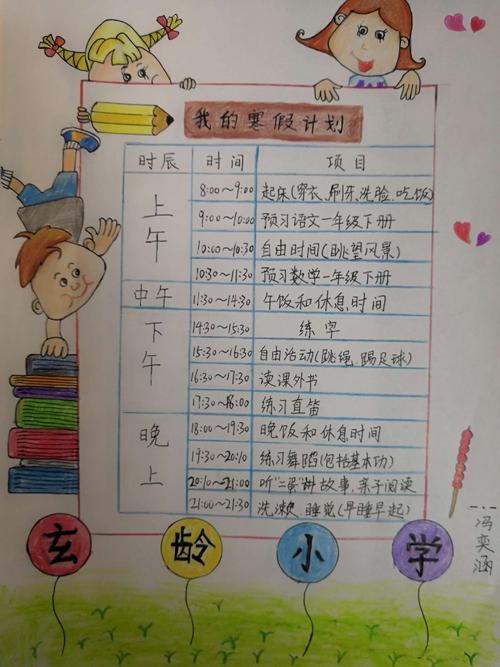 我的寒假计划
时辰 时间 项目
上午 8:00~9:00 起床(穿衣、刷牙、洗脸、吃饭)
9:00~10:00 预习语文一年级下册
10:00~10:30 自由时间(眺望风景)
10:30~11:30 预习数学一年级下册
中午 11:30~14:30 午饭和休息时间
下午 14:30~15:30 练字
15:30~16:30 自由活动(跳绳、踢足球)
16:30~17:30 读课外书
17:30~18:00 练习直笛
晚上 18:00~19:30 晚饭和休息时间
19:30~20:10 练习舞蹈(包括基本功)
20:10~21:00 听"二蛋"讲故事,亲子阅读
21:00~21:30 洗漱、睡觉(早睡早起)
冯奕涵
玄龄小学